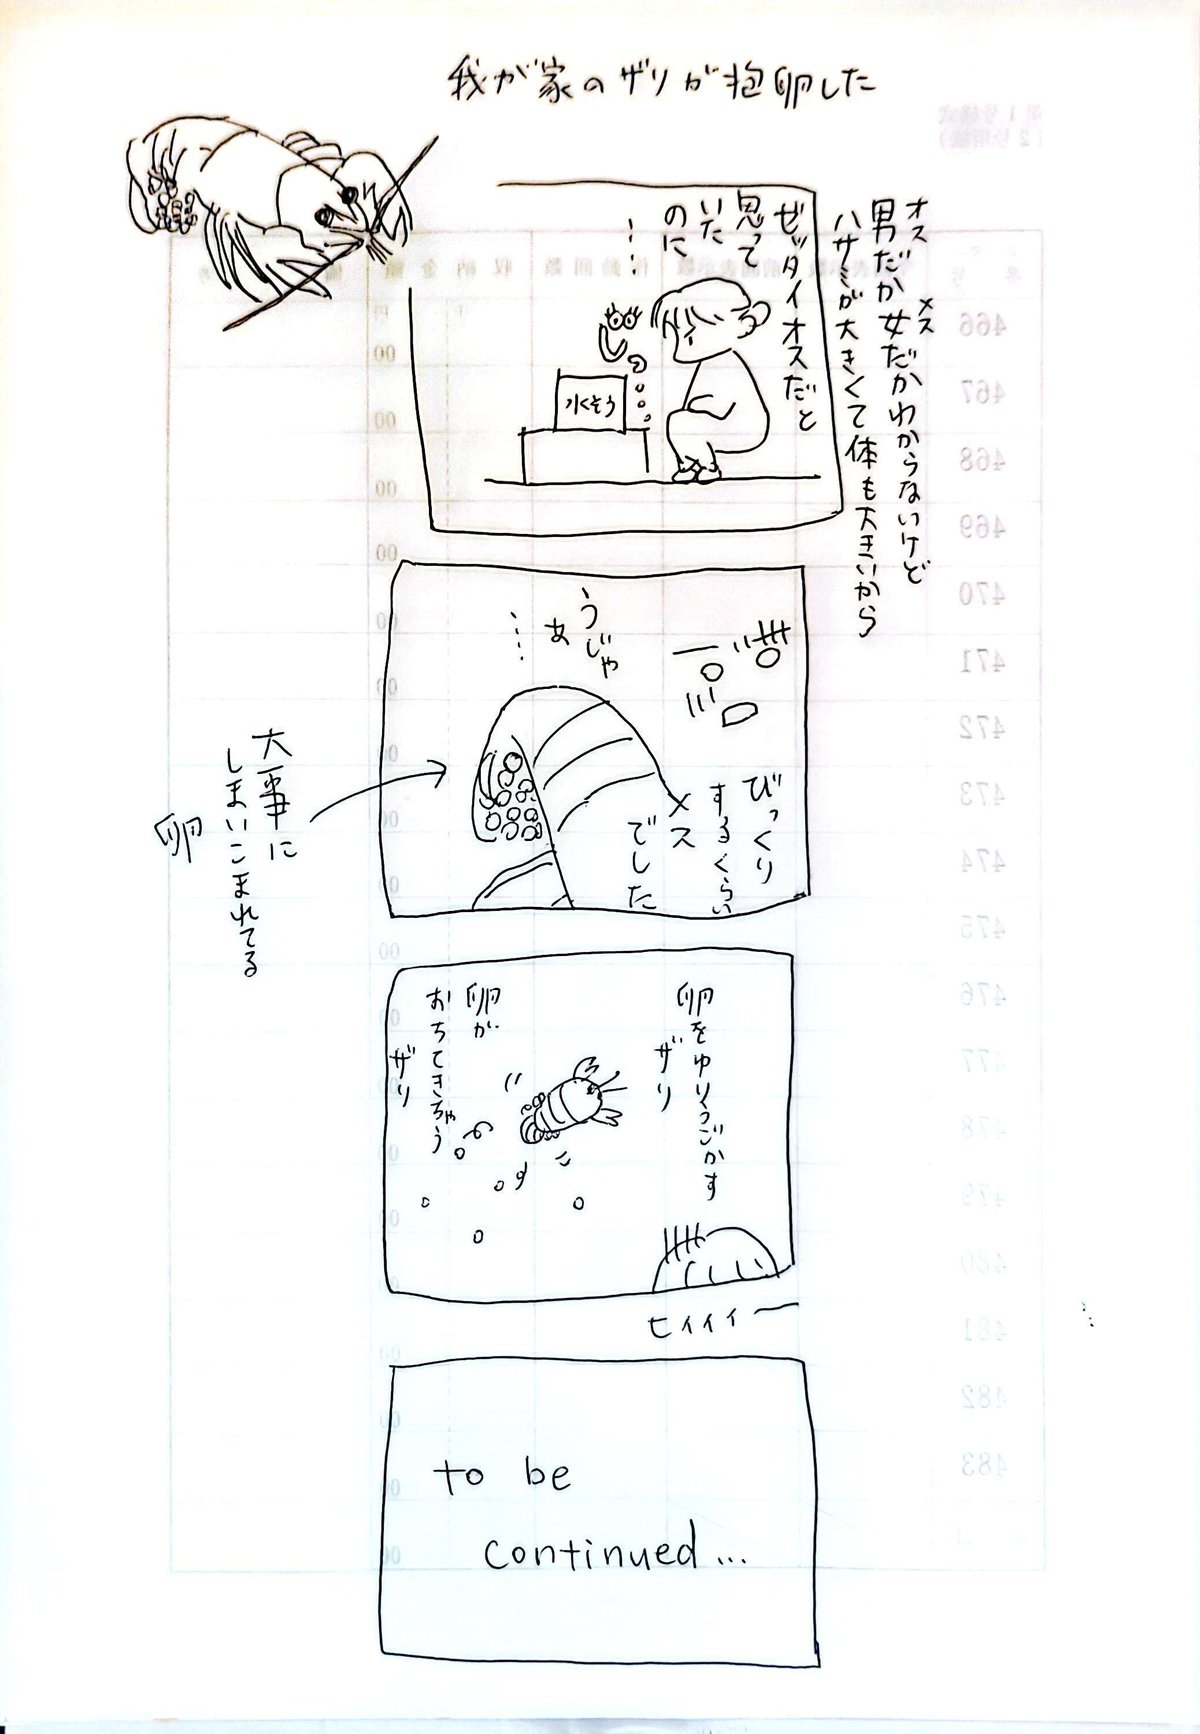 我が家のザリが抱卵した
オス メス
男だか女だかわからないけど
ハサミが大きくて体も大きいから
ゼッタイオスだと
思って
いた
のに
……
水そう
うじゃ
あ
……
びっくり
するくらい
メス
でした
大事に
しまいこまれてる
卵
卵をゆりうごかす
ザリ
卵が
おちてきちゃう
ザリ
ヒィィィー
to be
continued...
466
467
468
469
470
471
472
473
474
475
476
477
478
479
480
481
482
483